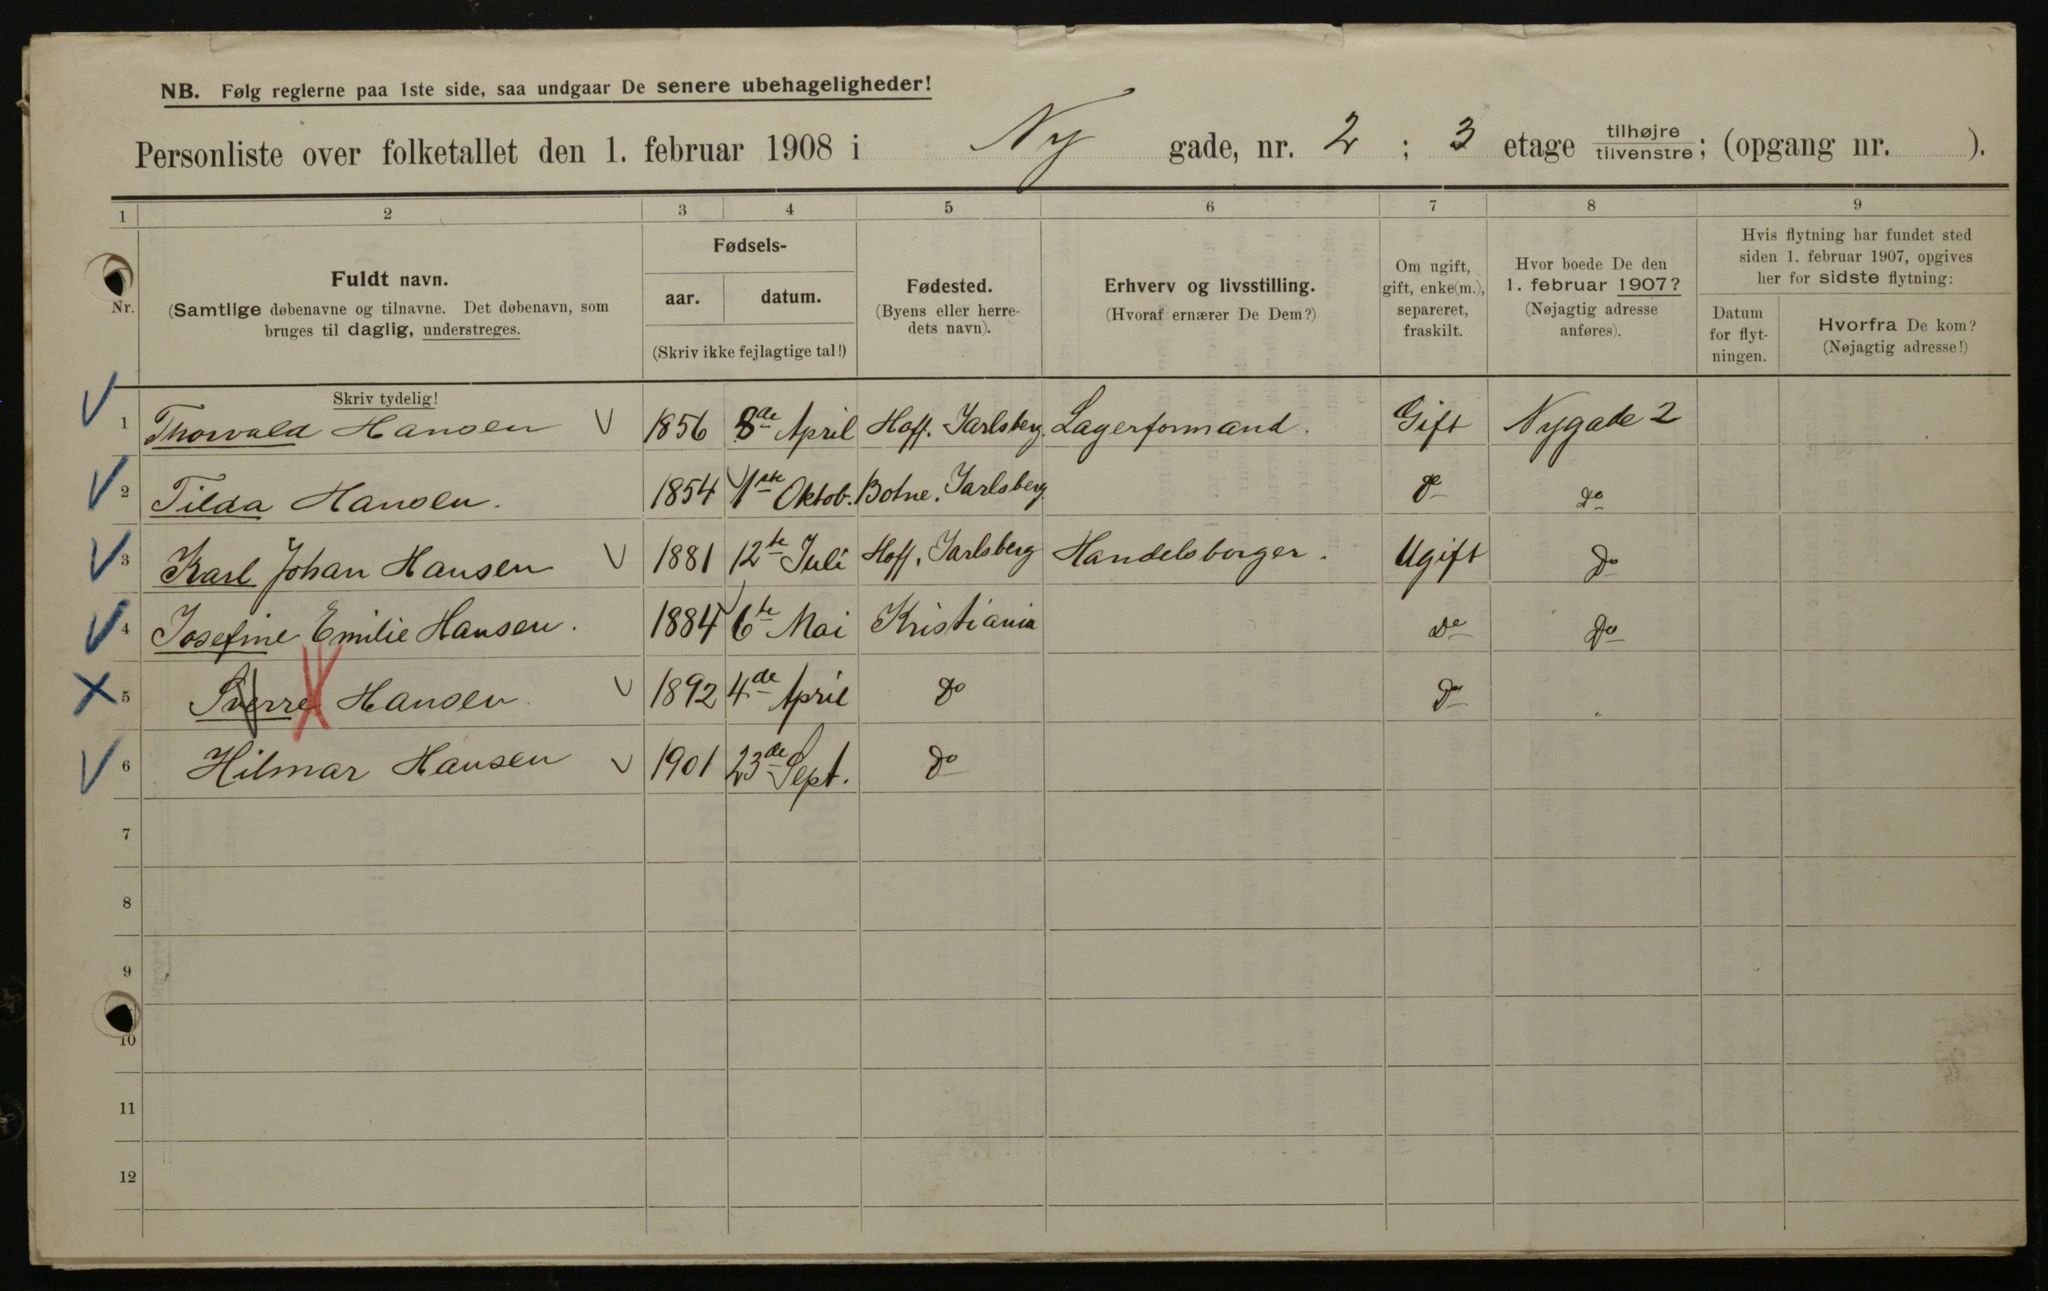 NB. Følg reglerne paa 1ste side, saa undgaar De senere ubehageligheder!
Personliste over folketallet den 1. februar 1908 i Ny gade, nr. 2 ; 3 etage tilhøjre/tilvenstre; (opgang nr. ).
1 2 3 4 5 6 7 8 9
Nr.
Fuldt navn.
(Samtlige døbenavne og tilnavne. Det døbenavn, som
bruges til daglig, understreges.
Skriv tydelig!
Fødsels-
aar. datum.
(Skriv ikke fejlagtige tal!)
Fødested.
(Byens eller herre-
dets navn).
Erhverv og livsstilling.
(Hvoraf ernærer De Dem?)
Om ugift,
gift, enke(m.),
separeret,
fraskilt.
Hvor boede De den
1. februar 1907?
(Nøjagtig adresse
anføres).
Hvis flytning har fundet sted
siden 1. februar 1907, opgives
her for sidste flytning:
Datum
for flyt-
ningen.
Hvorfra De kom?
(Nøjagtig adresse!)
1 Thorvald Hansen 1856 8de April Hoff. Jarlsberg. Lagerformand. Gift Nygade 2
2 Tilda Hansen. 1854 1ste Oktob. Botne. Jarlsberg do do
3 Karl Johan Hansen 1881 12te Juli Hoff, Jarlsberg Handelsborger. Ugift do
4 Josefine Emilie Hansen. 1884 6te Mai Kristiania do do
5 Sverre Hansen. 1892 4de April do do
6 Hilmar Hansen 1901 23de Sept. do
7
8
9
10
11
12